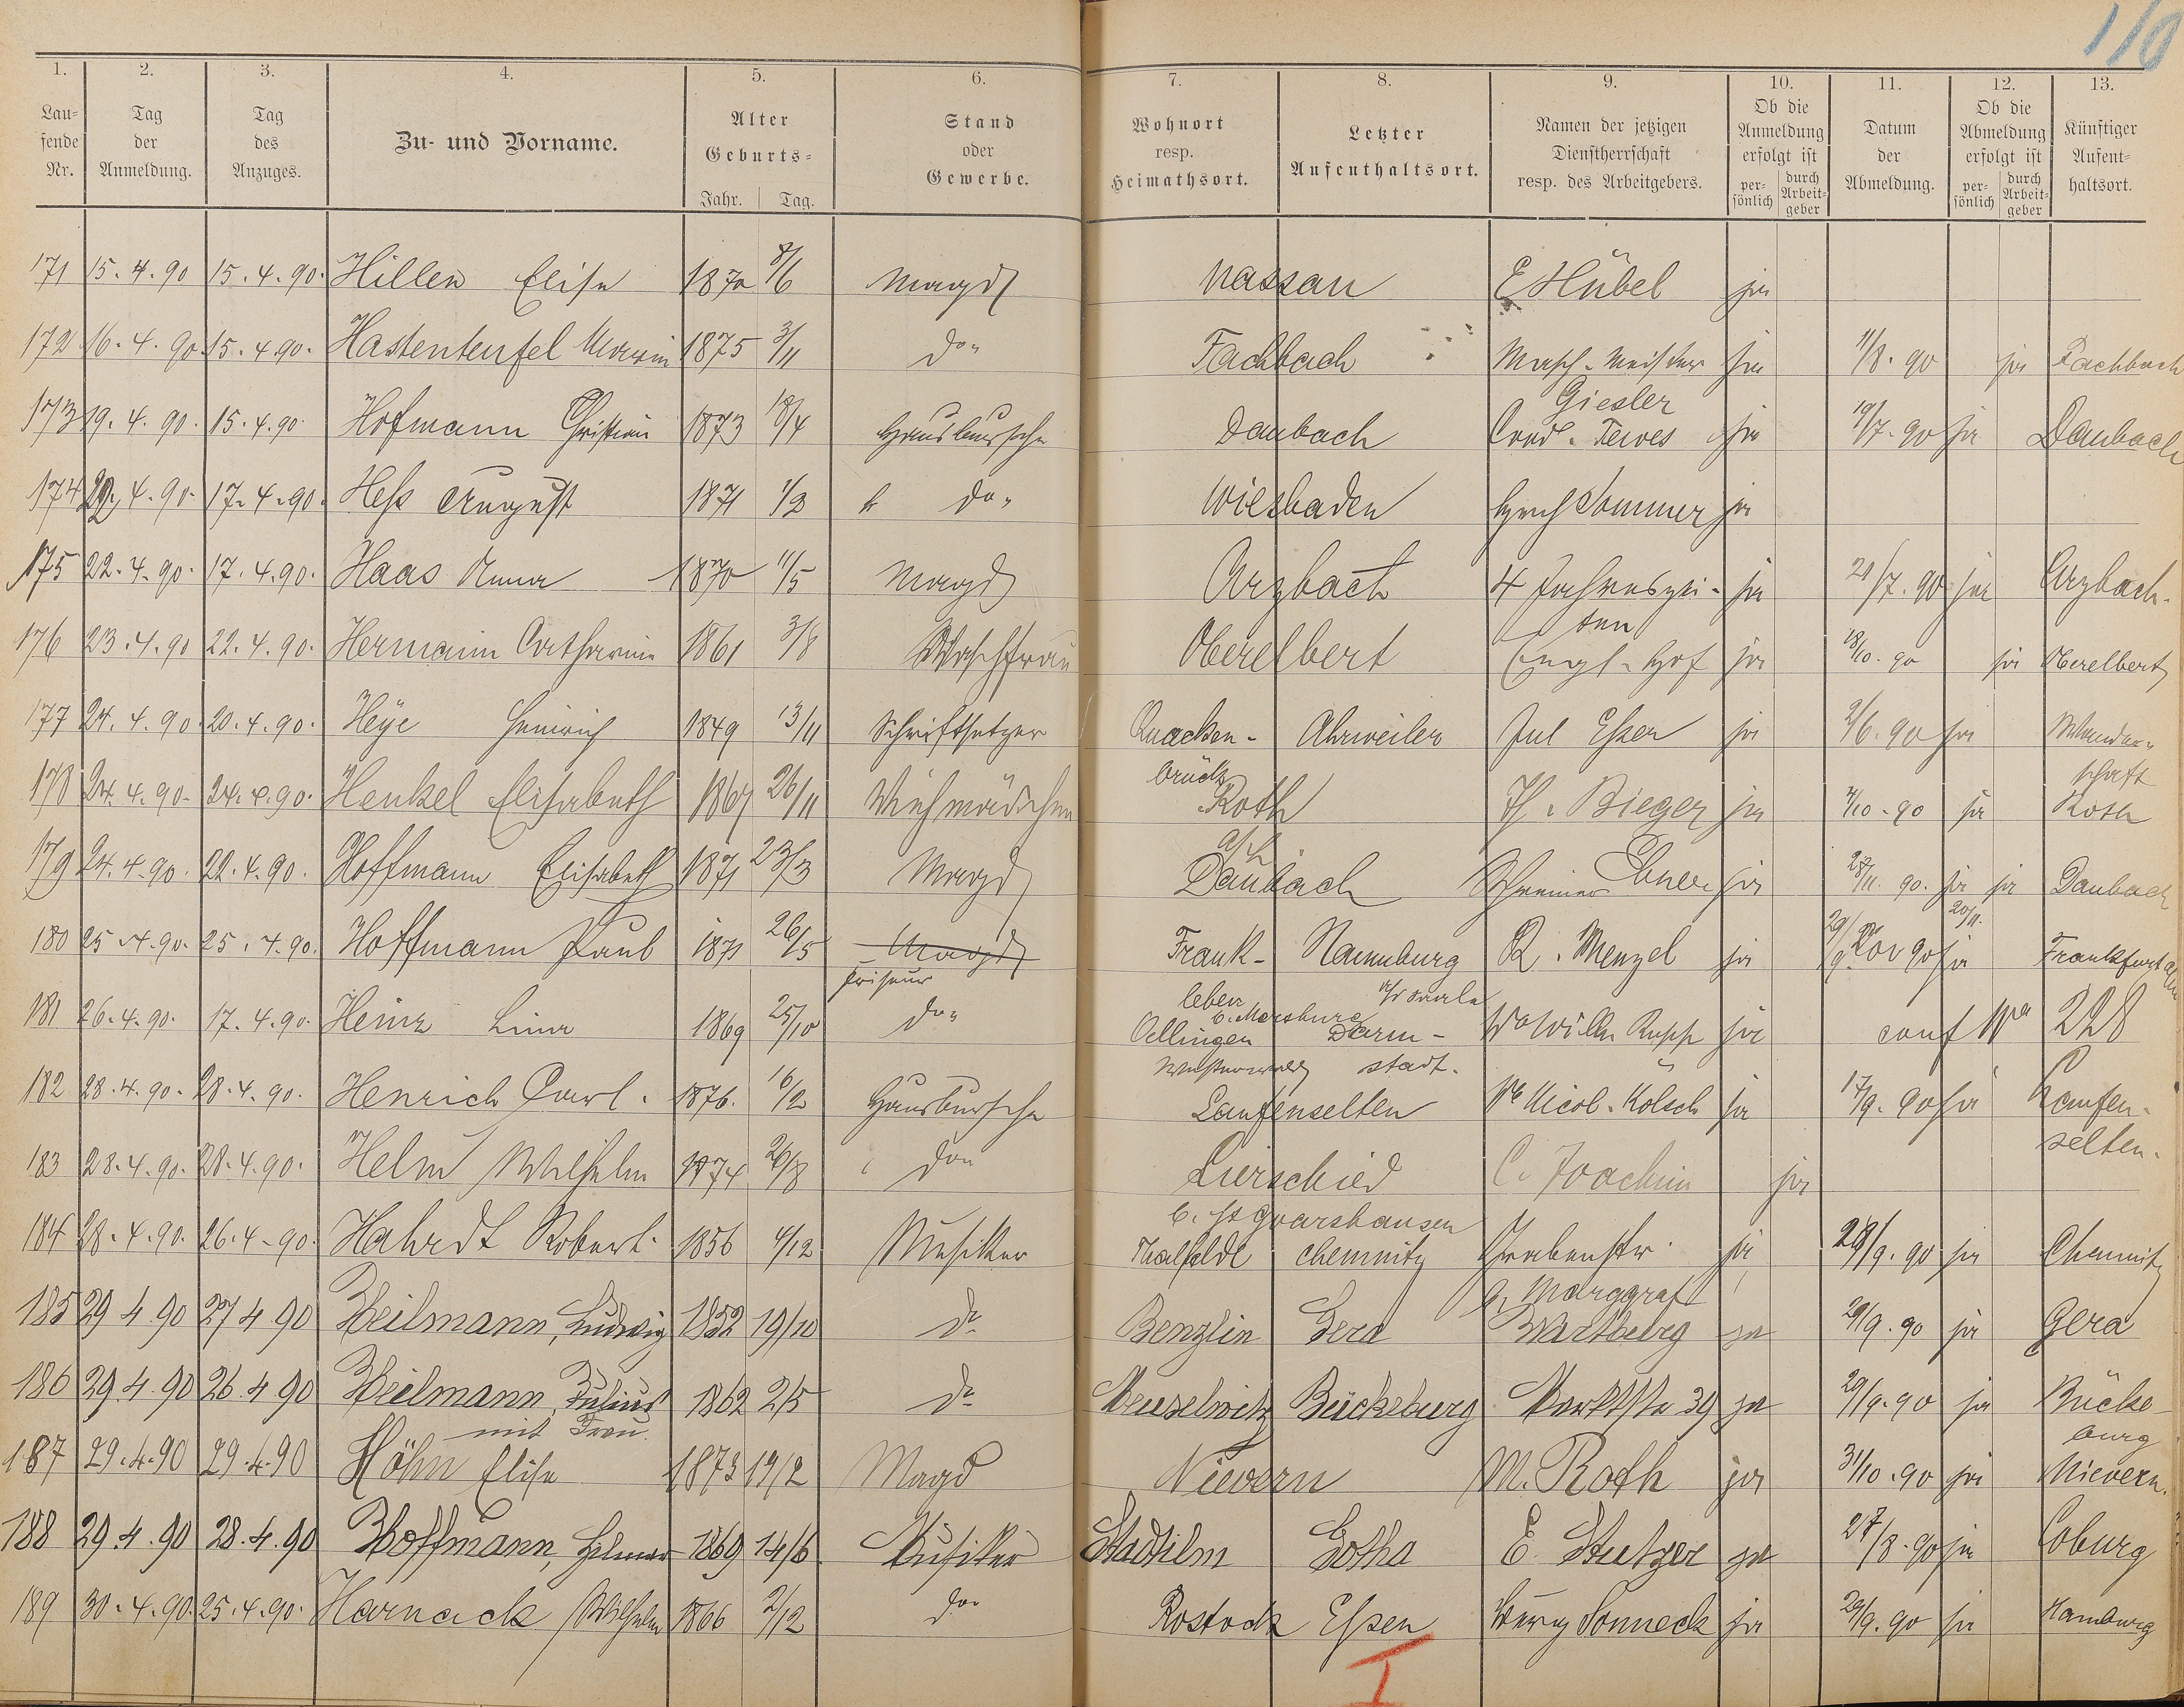 110
1. 2. 3. 4. 5. 6. 7. 8. 9. 10. 11. 12. 13.
Lau-
fende
Nr.
Tag
der
Anmeldung.
Tag
des
Anzuges.
Zu- und Vorname.
Alter
Geburts-
Jahr. Tag.
Stand
oder
Gewerbe.
Wohnort
resp.
Heimathsort.
Letzter
Aufenthaltsort.
Namen der jetzigen
Dienstherrschaft
resp. des Arbeitgebers.
Ob die
Anmeldung
erfolgt ist
per-
sönlich
durch
Arbeit-
geber
Datum
der
Abmeldung.
Ob die
Abmeldung
erfolgt ist
per-
sönlich
durch
Arbeit-
geber
Künftiger
Aufent-
haltsort.
171 15.4.90 15.4.90. Hillen Elise 1870 8/6 Magd Nassau E Hübel ja
172 16.4.90 15.4.90. Hastenteufel Maria 1875 3/11 do. Fachbach Masch. Meister ja 11/8.90 ja Fachbach
Giesler
173 19.4.90. 15.4.90. Hofmann Christian 1873 18/4 Hausbursche Daubach Cond. Tewes ja 19/7.90 ja Daubach
174 22.4.90. 17.4.90. Heß August 1871 do. Wiesbaden Sommer ja
175 22.4.90. 17.4.90. Haas Anna 1870 11/5 Magd Arzbach 4 Jahreszei- ja 20/7.90 ja Arzbach.
ten
176 23.4.90 22.4.90. Hermann Catharine 1861 3/8 Waschfrau Oberelbert Engl. Hof ja 18/10.90 ja Oberelbert
177 24.4.90. 20.4.90. Heye Heinrich 1849 13/11 Schriftsetzer Quacken- Ahrweiler Jul Eßer ja 2/6.90 ja Wander-
brück schaft
178 24.4.90. 24.4.90. Henkel Elisabeth 1867 26/11 Roth Bieger ja 7/10.90 ja Roth
179 24.4.90. 22.4.90. Hoffmann Elisabeth 1871 23/3 Magd Daubach Schreiner Ebner ja 28/11.90. ja ja Daubach
20/11.
180 25.4.90. 25.4.90. Hoffmann Paul 1871 26/5 Magd Frank- Naumburg R. Menzel ja 29/9 90 ja Frankfurt a/M
Friseur leben a/d Saale
b. Merseburg
181 26.4.90. 17.4.90. Heinz Lina 1869 25/10 do. Oellingen Darm- Ww Wilh. Rupp ja conf 228
Westerwald stadt.
182 28.4.90. 28.4.90. Henrich Carl. 1876. 16/2 Hausbursche Laufenselten Nicol. Kölsch ja 17/9.90 ja Laufen-
selten.
183 28.4.90. 28.4.90. Helm Wilhelm 1874 26/8 do. Lierschied C. Joachim ja
b. St Goarshausen
184 28.4.90. 26.4.90. Hahrdt Robert. 1856 4/12 Musiker chemnitz Grabenstr. ja 28/9.90 ja Chemnitz
b. Marggraf
185 29 4 90 27 4 90 Heilmann, Ludwig 1852 19/10 do. Benzlin Gera Wartburg ja 29/9.90 ja Gera
186 29.4.90 26.4 90 Heilmann, Julius 1862 2/5 do. Meuselwitz Bückeburg Marktstr 39 ja 29/9.90 ja Bücke-
mit Frau. burg
187 29.4.90 29.4.90 Höhn Elise 1873 19/2 Magd Nievern M. Roth ja 31/10.90 ja Nievern.
188 29.4.90 28.4.90 Hoffmann, Hilmar 1869 14/6 Musiker Stadtilm Gotha E. Stutzer ja 27/8.90 ja Coburg
189 30.4.90. 25.4.90. Harnack Wilhelm 1866 2/12 do. Rostock Essen Burg Sonneck ja 29/9.90 ja Hamburg
I